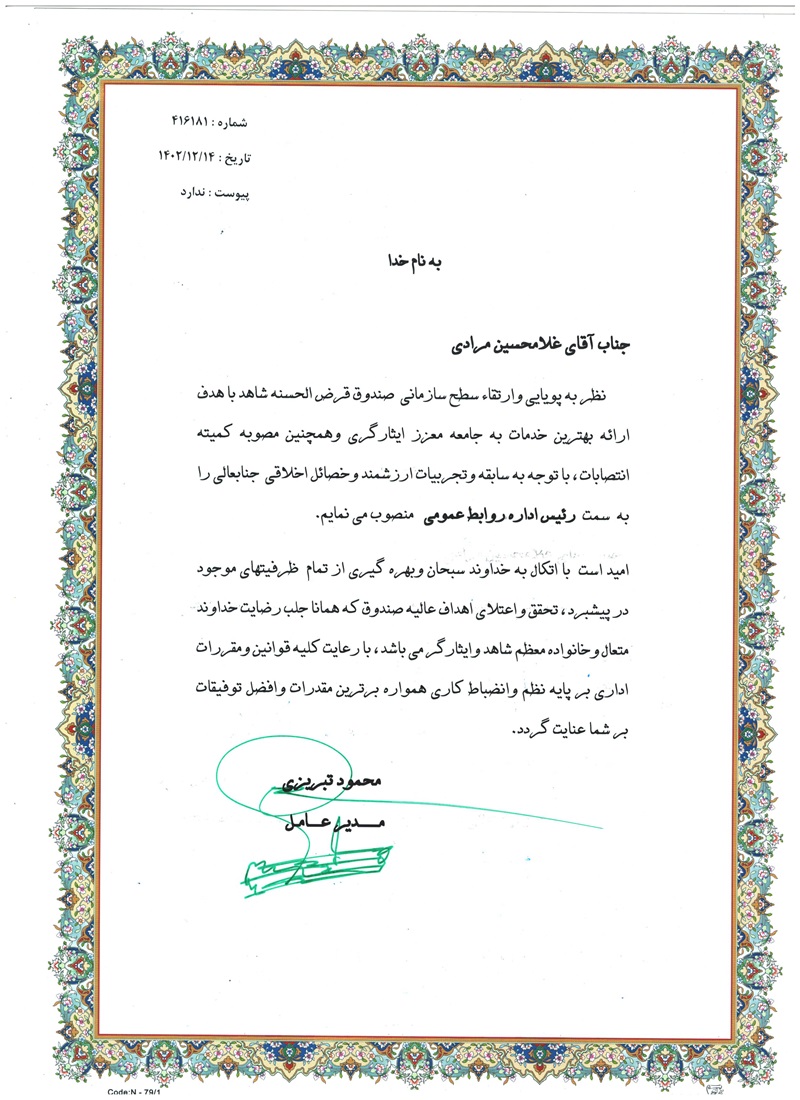 شماره : ۴۱۶۱۸۱
تاریخ : ۱۴۰۲/۱۲/۱۴
پیوست : ندارد
به نام خدا
جناب آقای غلامحسین مرادی
نظر به پویایی وارتقاء سطح سازمانی صندوق قرض الحسنه شاهد با هدف
ارائه بهترین خدمات به جامعه معزز ایثارگری وهمچنین مصوبه کمیته
انتصابات، با توجه به سابقه وتجربیات ارزشمند وخصائل اخلاقی جنابعالی را
به سمت رئیس اداره روابط عمومی منصوب می نمایم.
امید است با اتکال به خداوند سبحان وبهره گیری از تمام ظرفیتهای موجود
در پیشبرد، تحقق واعتلای اهداف عالیه صندوق که همانا جلب رضایت خداوند
متعال وخانواده معظم شاهد وایثارگر می باشد، با رعایت کلیه قوانین ومقررات
اداری بر پایه نظم وانضباط کاری همواره برترین مقدرات وافضل توفیقات
بر شما عنایت گردد.
محمود تبریزی
مدیر عامل
Code:N - 79/1